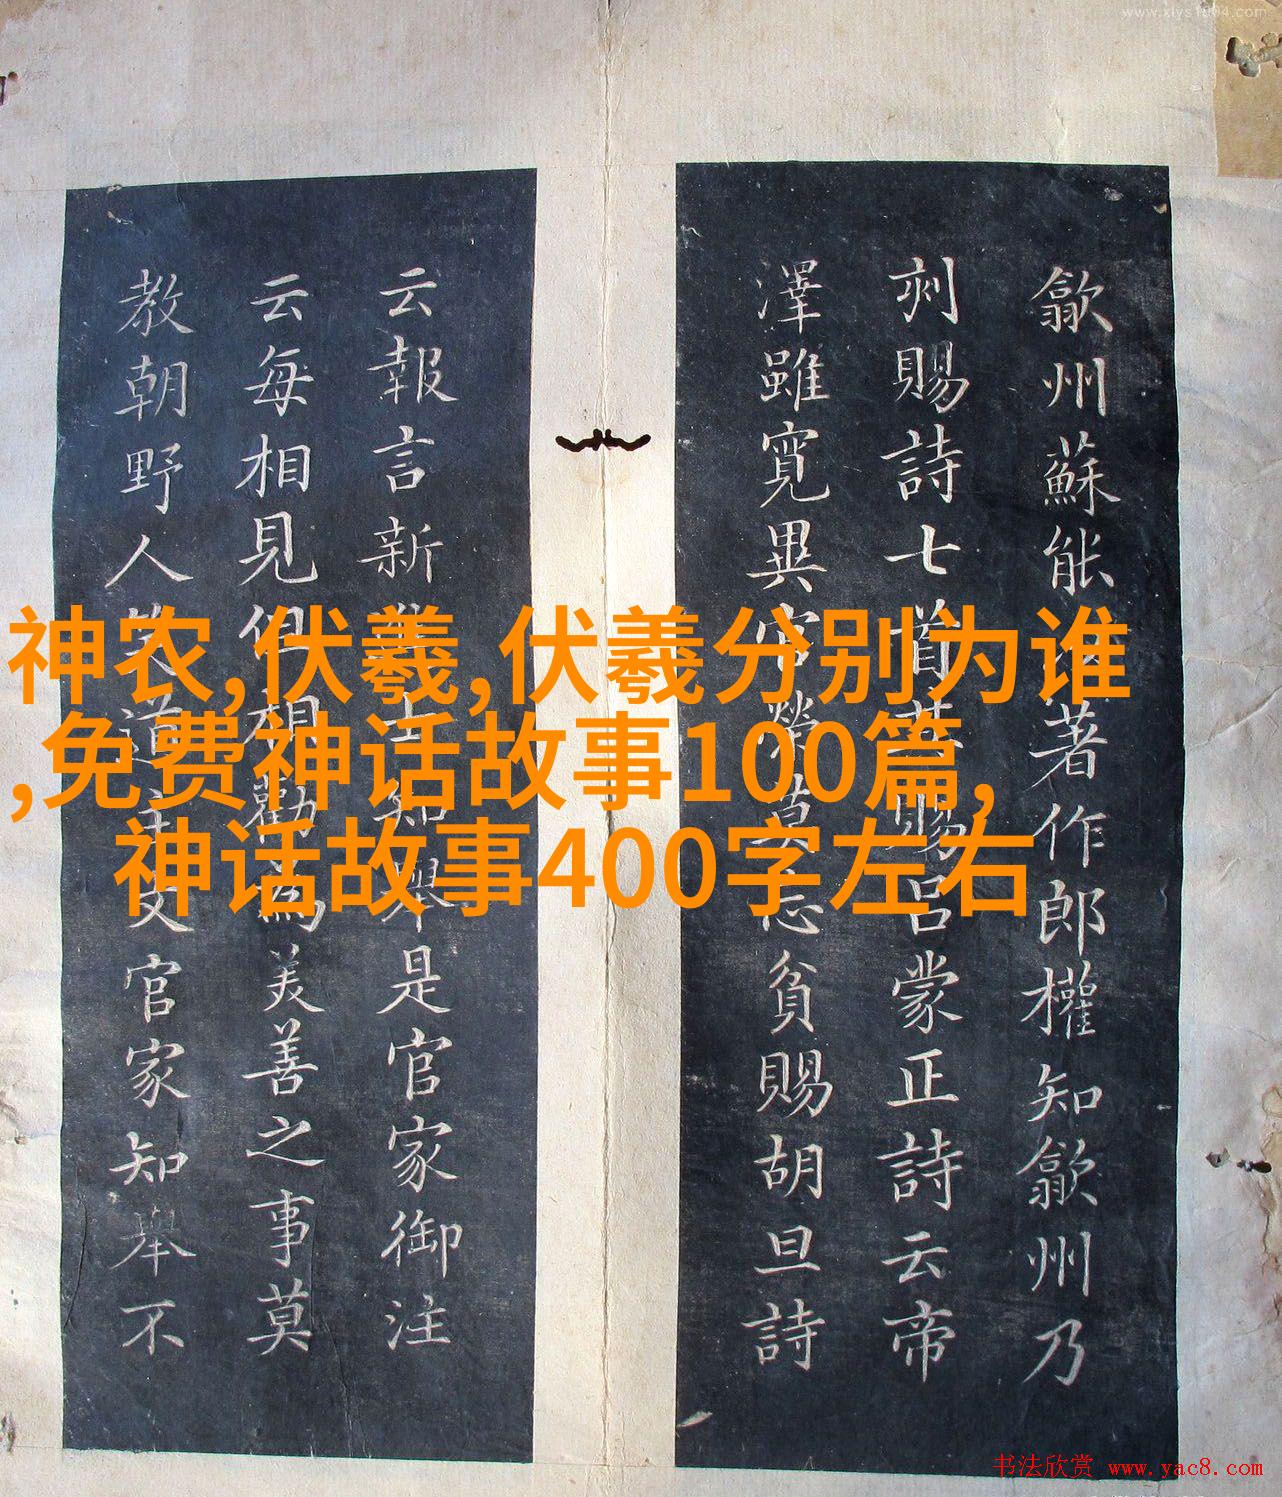 www.xlys1904.com
歙州蘇能 著作郎權知歙州乃
刻賜詩七首 賜呂蒙正詩云帝
澤雖寬異官榮莫忘貧賜胡旦詩
云報言新 士知舉是官家御注
云每相見但相勸為美善之事莫
教朝野人笑道主文官家知舉不
神农,伏羲,伏羲分别为谁
,免费神话故事100篇,
神话故事400字左右
书法欣赏 www.yac8.com